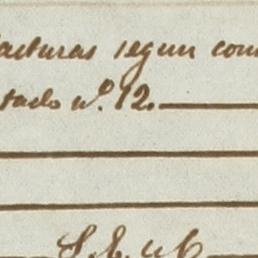 facturas segun com
stado nº. 12.
S. E. u O